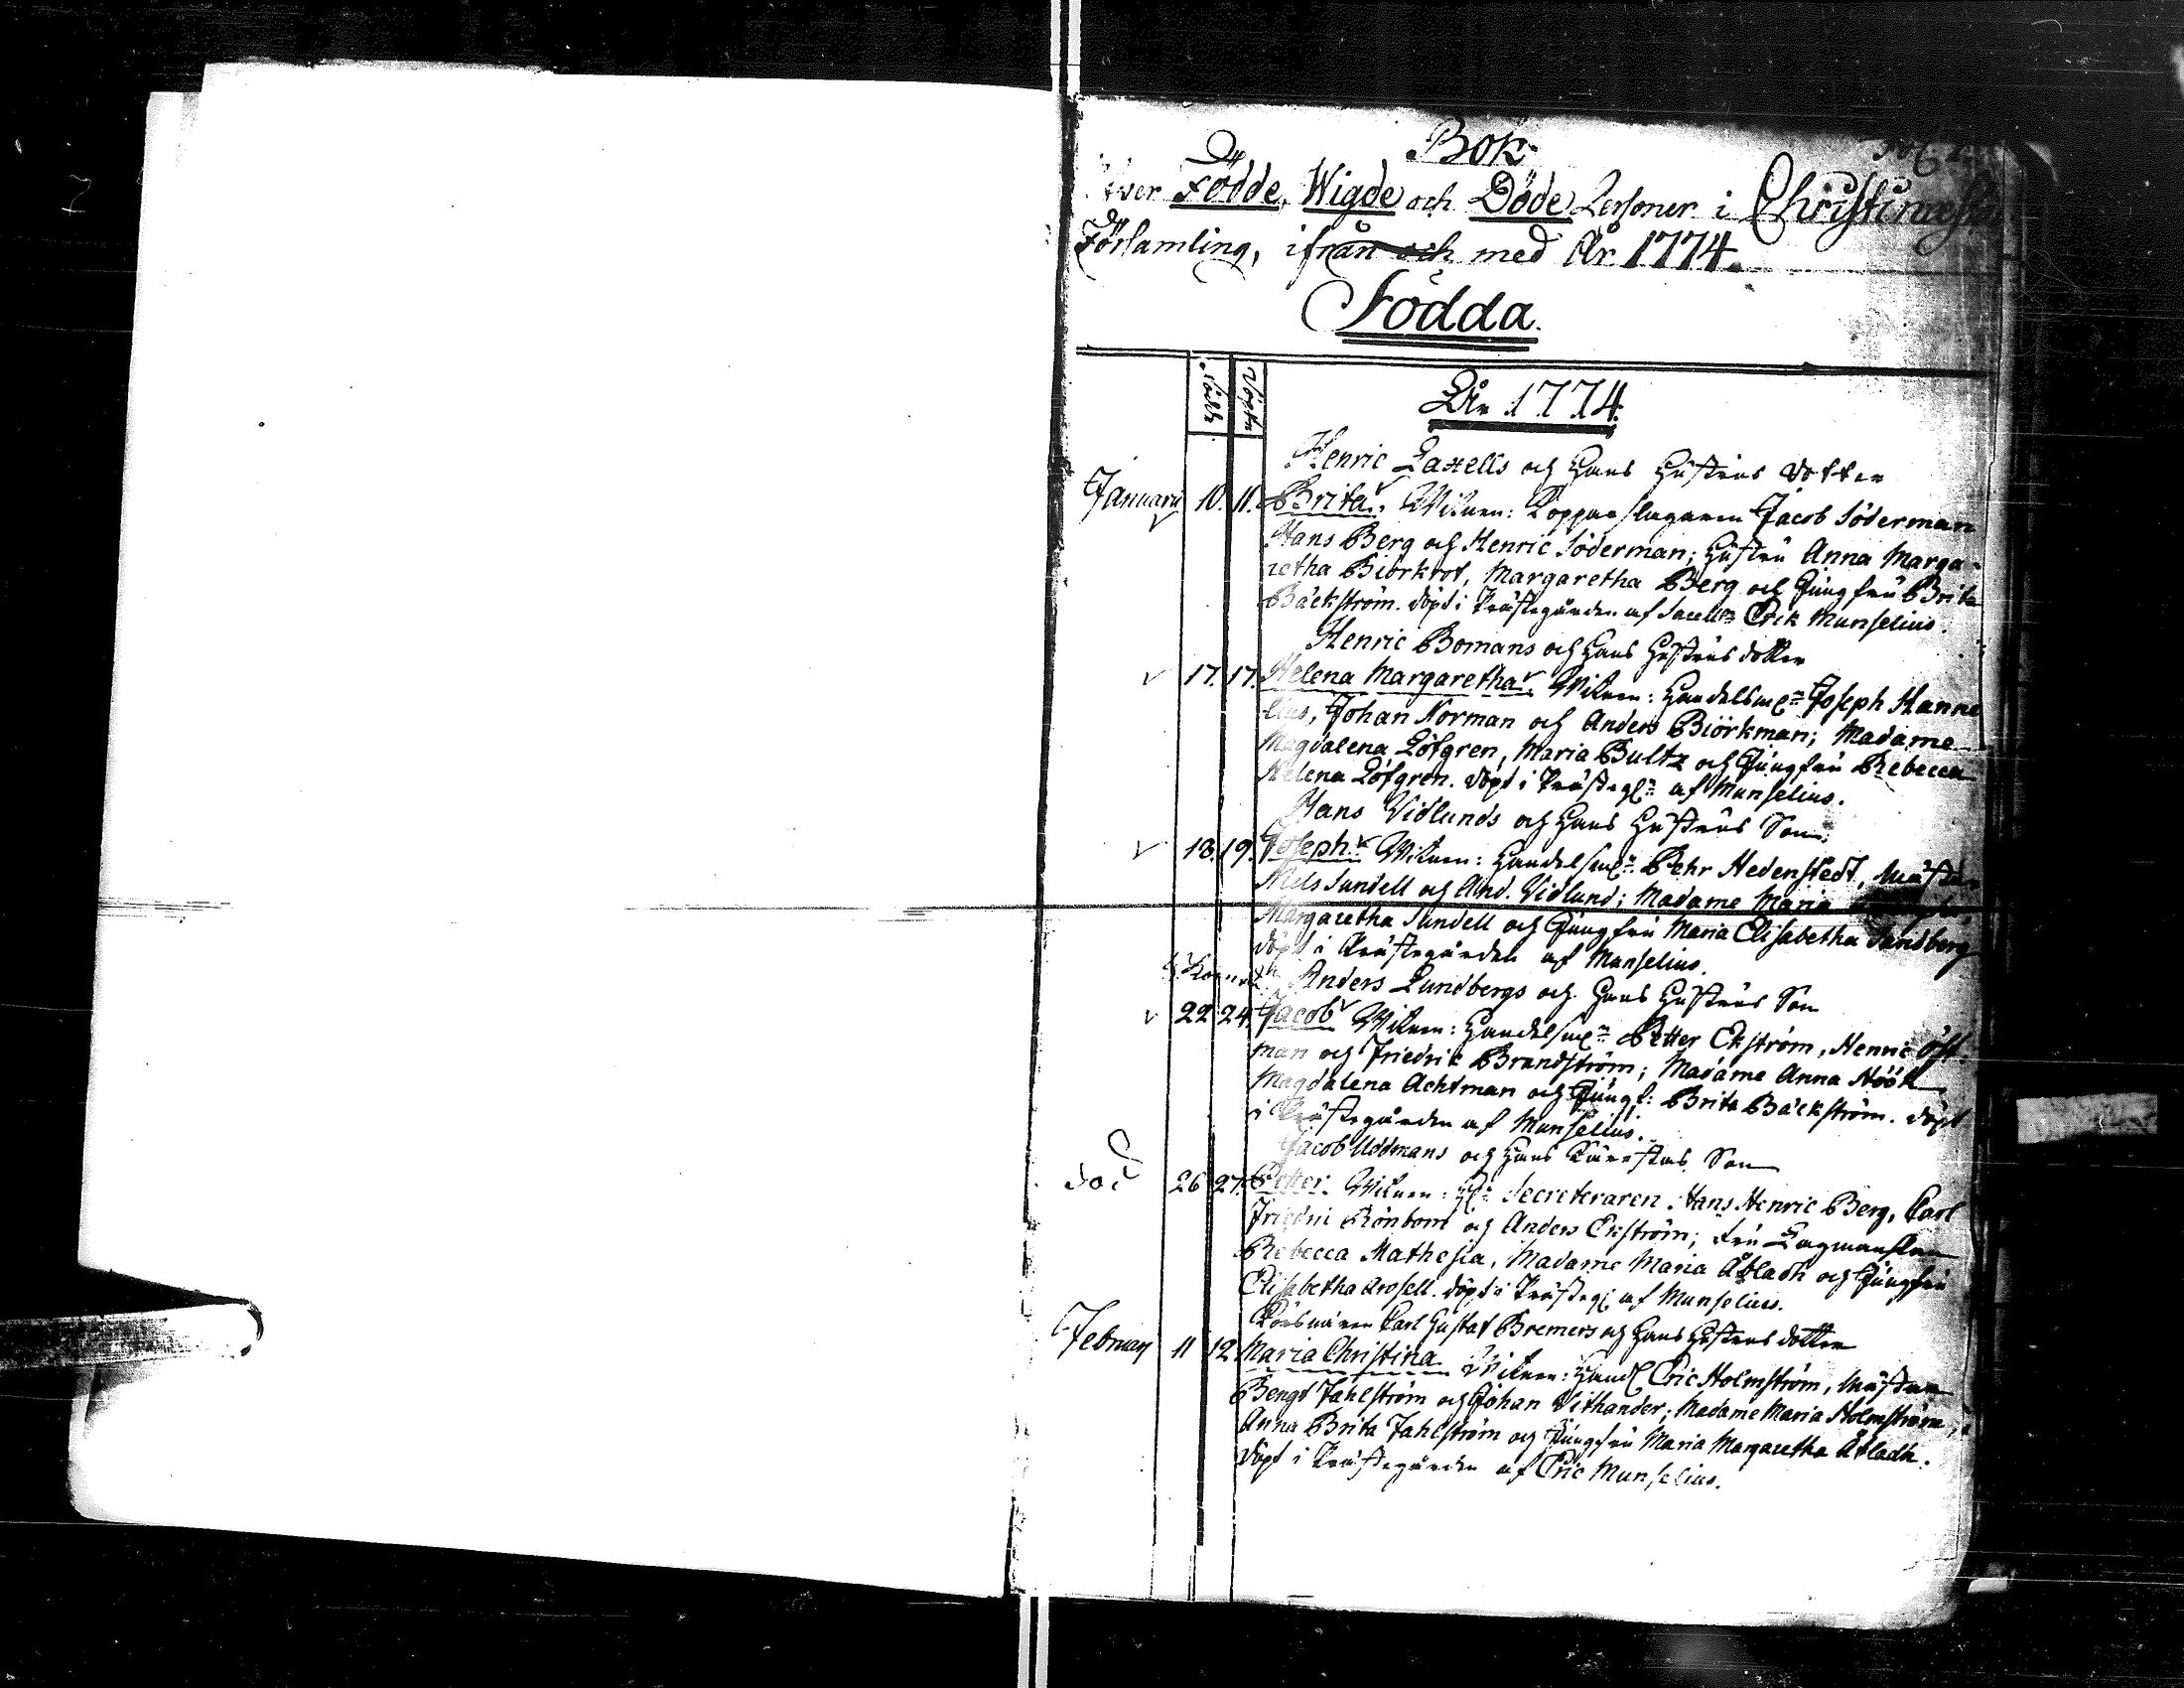 Bok
Fol. 1.
öfver Födde, Wigde och Döde Personer i Christinestads
Församling, ifrån och med År 1774.
Födda.
Född
Döptes
År 1774.
Henric Laxells och hans hustrus dotter
Januarii 10. 11. Brita. Witnen: Kopparslagaren Jacob Söderman
Hans Berg och Henric Söderman; hustru Anna Marga-
retha Biörkrot, Margaretha Berg och Jungfru Brita
Bäckström. döpt i Prästegården af Sacell: Erik Munselius.
Henric Bomans och hans hustrus dotter
17. 17. Helena Margaretha. Witnen: Handelsm: Joseph Hanne
lius, Johan Norman och Anders Biörkman; Madame
Magdalena Löfgren, Maria Bultz och Jungfru Rebecca
Helena Löfgren. döpt i Prästeg: af Munselius.
Hans Vidlunds och hans hustrus Son
18. 19. Joseph. Witnen: Handelsm: Pehr Hedenstedt, Mästar
Niels Sundell och And. Vidlund; Madame Maria
Margaretha Sundell och Jungfru Maria Elisabetha Sandberg
döpt i Prästegården af Munselius.
Anders Lundbergs och hans hustrus Son
22 24. Jacob Witnen: Handelsm: Petter Ekström, Henric Öst
man och Friedric Brandström; Madame Anna Höök
Magdalena Achtman och Jungf: Brita Bäckström. döpt
i Prästegården af Munselius.
Jacob Uddmans och hans Kärestas Son
död 26 27. Petter. Witnen: H: Secreteraren Hans Henric Berg, Carl
Friedric Rönbom och Anders Ekström; Fru Lagmanskan
Rebecca Mathesia, Madame Maria Åbladh och Jungfru
Elisabetha Arosell. döpt i Prästeg: af Munselius.
Körsnären Carl Gustaf Bremers och hans hustrus dotter
Februarij 11 12 Maria Christina. Witnen: Handl Eric Holmström, Mästare
Bengt Fahlström och Johan Vithander; Madame Maria Holmström,
Anna Brita Fahlström och Jungfru Maria Margaretha Åbladh.
döpt i Prästegården af Eric Munselius.